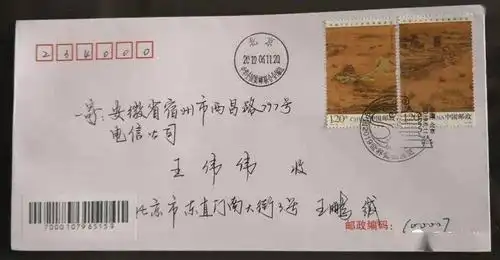 234000
北京
寄:安徽省宿州市西昌路297号
电信公司
王伟伟 收
北京市东直门南大街3号 王鹏 缄
邮政编码: 100007
7000107965159
1.20元 中国邮政
1.20元 CHINA 中国邮政